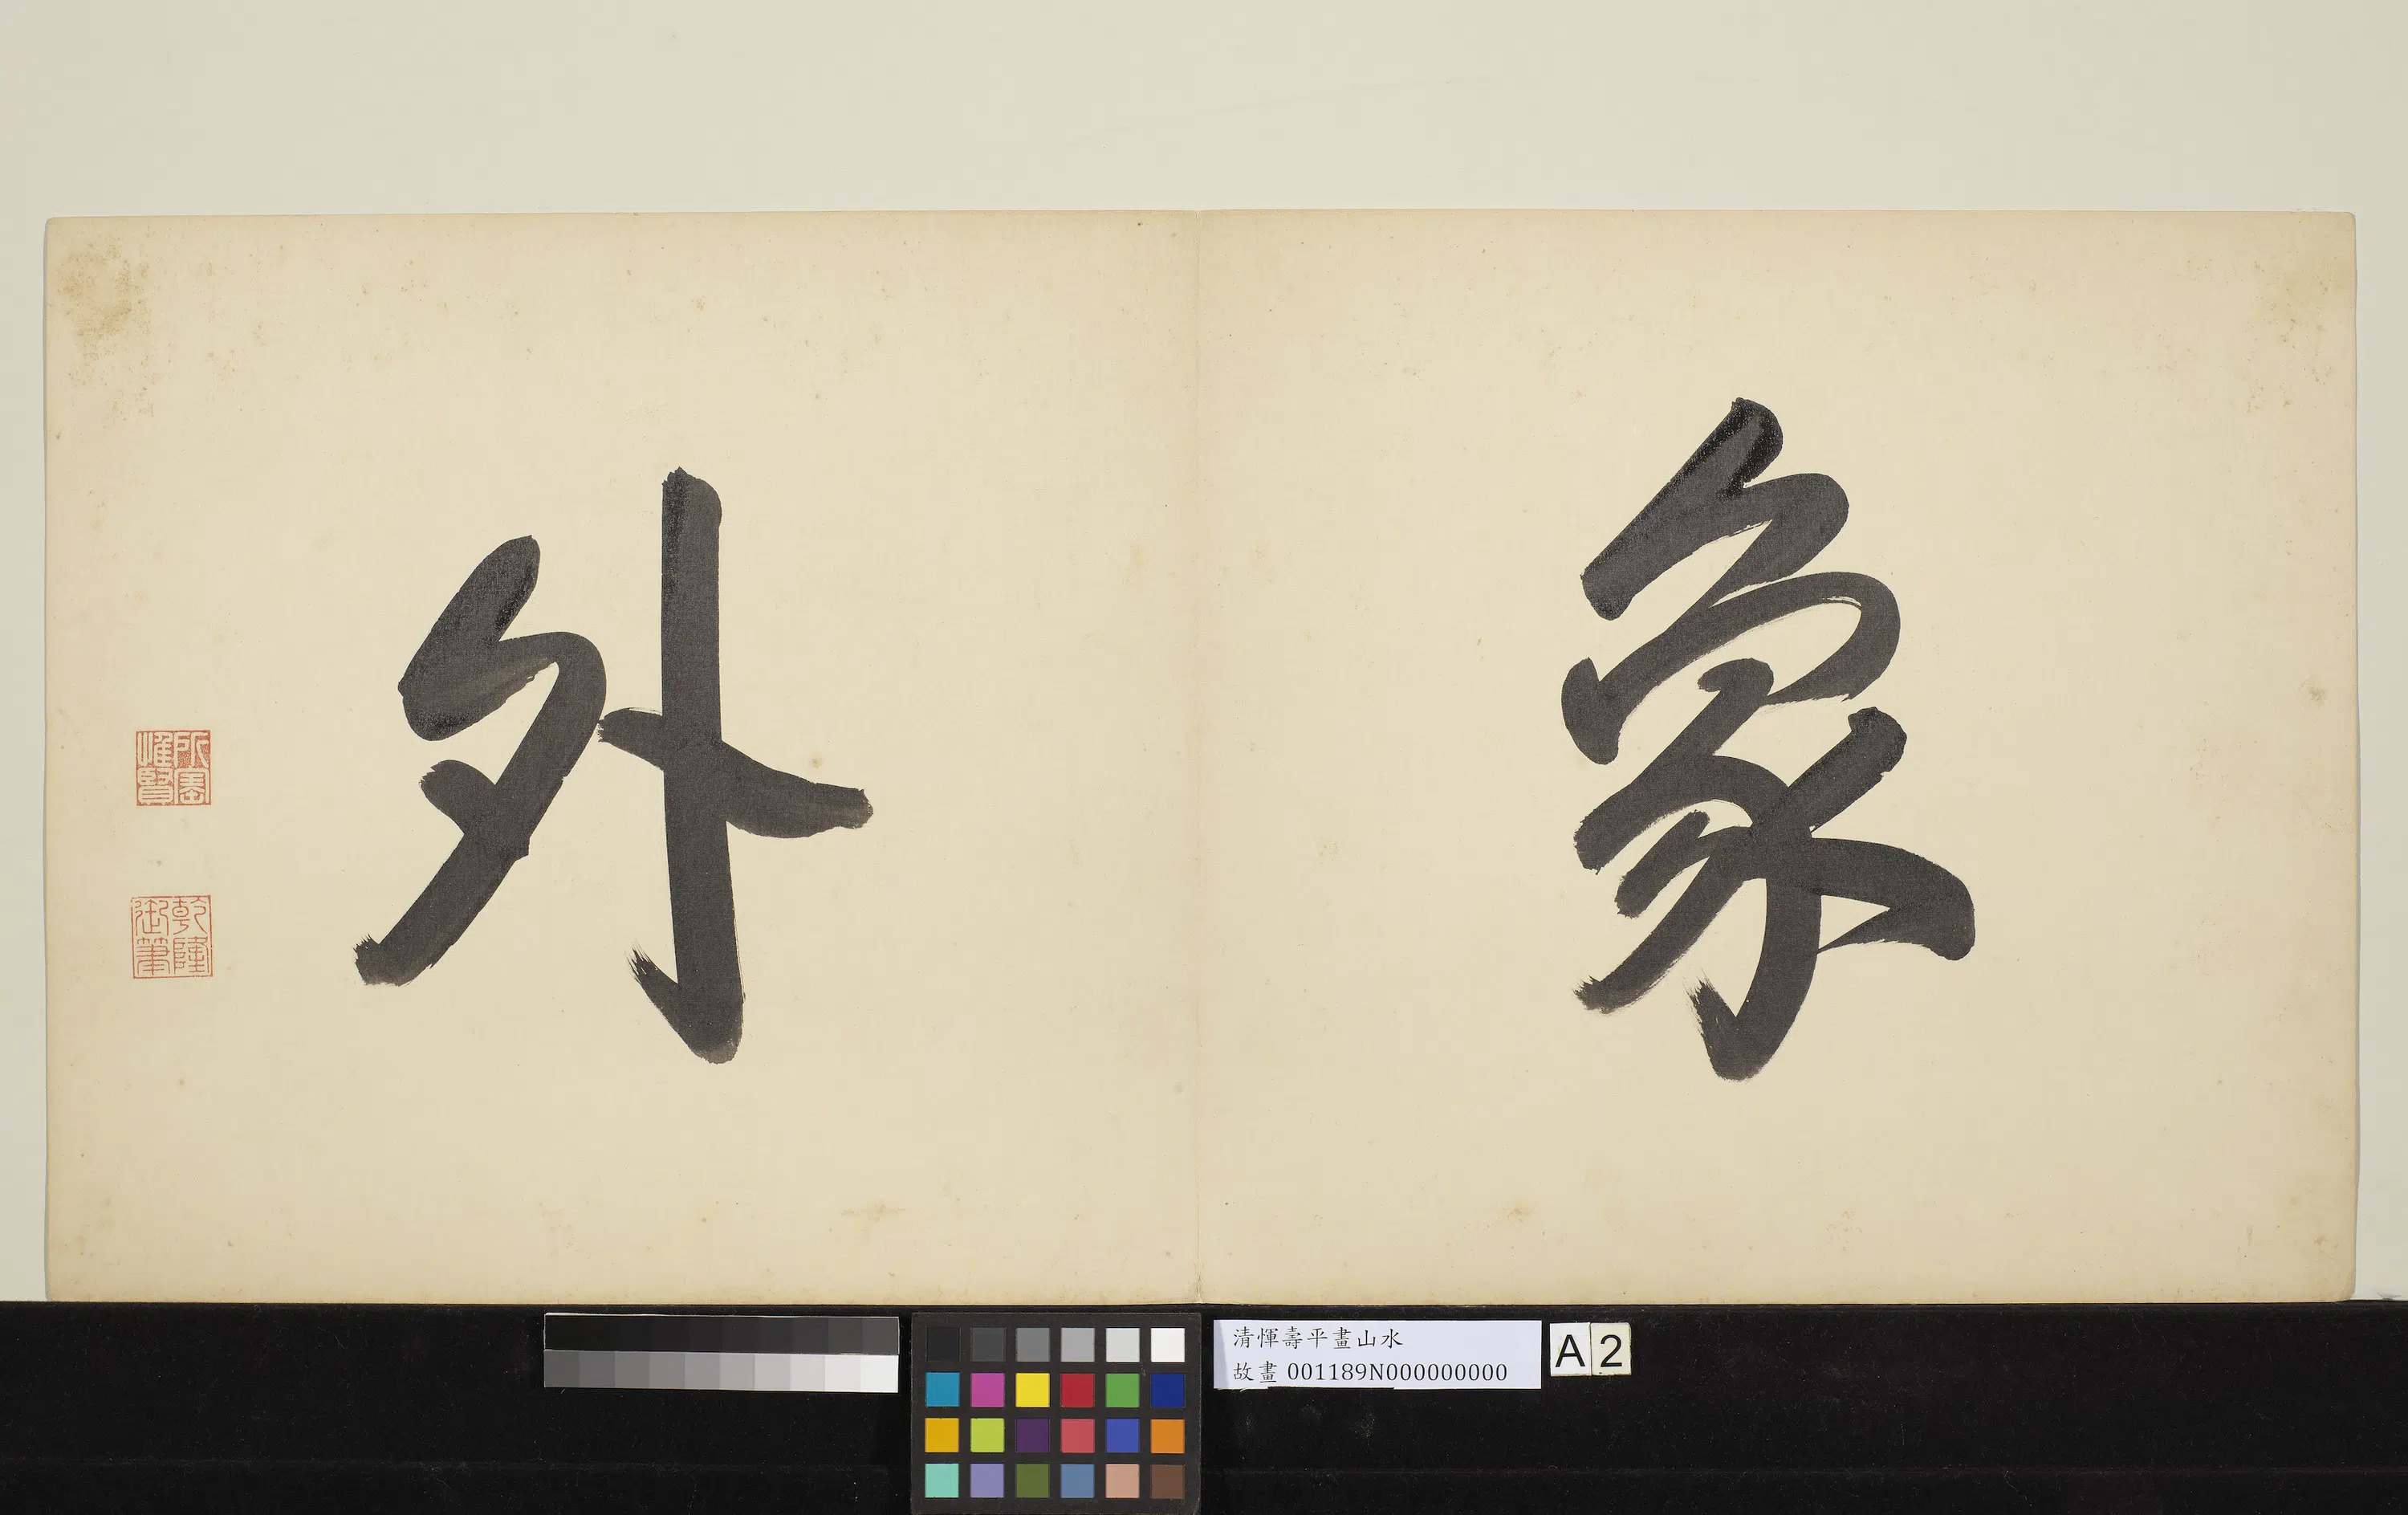 象外
所寶惟賢
乾隆御筆
清惲壽平畫山水
故畫 001189N000000000
A 2